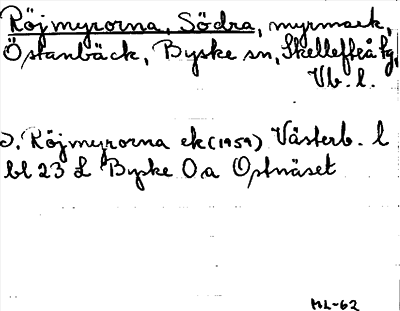 Röjmyrorna, Södra, myrmark,
Östanbäck, Byske sn, Skellefteå tg,
Vb. l.
S. Röjmyrorna ek (1959) Västerb. l
bl 23 L Byske 0a Ostnäset
ML-62